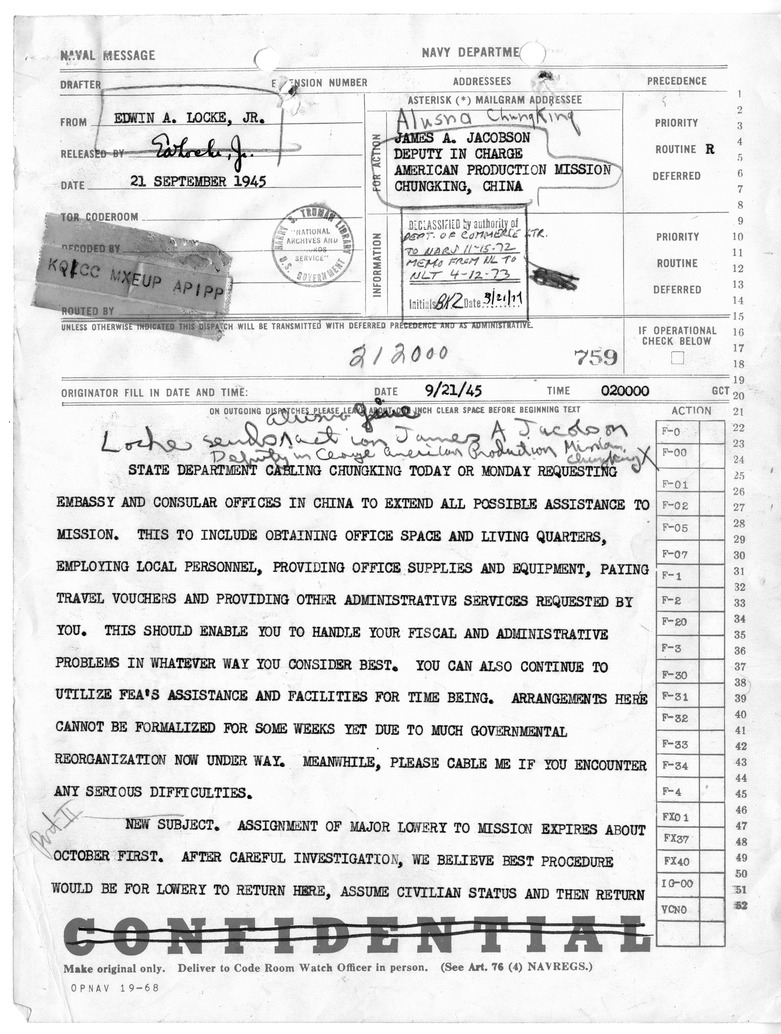 NAVAL MESSAGE
NAVY DEPARTME
DRAFTER
EXTENSION NUMBER
ADDRESSEES
PRECEDENCE
FROM EDWIN A. LOCKE, JR.
RELEASED BY EALocke, Jr.
DATE 21 SEPTEMBER 1945
TOR CODEROOM
DECODED BY
KQICC MXEUP APIPP
ROUTED BY
HARRY S. TRUMAN LIBRARY
"NATIONAL
ARCHIVES AND
RECORDS
SERVICE"
U.S. GOVERNMENT
ASTERISK (*) MAILGRAM ADDRESSEE
Alusna ChungKing
FOR ACTION
JAMES A. JACOBSON
DEPUTY IN CHARGE
AMERICAN PRODUCTION MISSION
CHUNGKING, CHINA
PRIORITY
ROUTINE R
DEFERRED
INFORMATION
DECLASSIFIED by authority of
DEPT. OF COMMERCE LTR.
TO NARS 11-15-72
MEMO FROM NL TO
NLT 4-12-73
Initials BKZ Date 3/21/77
PRIORITY
ROUTINE
DEFERRED
UNLESS OTHERWISE INDICATED THIS DISPATCH WILL BE TRANSMITTED WITH DEFERRED PRECEDENCE AND AS ADMINISTRATIVE.
IF OPERATIONAL
CHECK BELOW
212000
759
ORIGINATOR FILL IN DATE AND TIME:
DATE 9/21/45 TIME 020000 GCT
ON OUTGOING DISPATCHES PLEASE LEAVE ABOUT ONE INCH CLEAR SPACE BEFORE BEGINNING TEXT
alusna
Locke sends action James A Jacobson
Deputy in Charge American Production Mission
Chungking X
STATE DEPARTMENT CABLING CHUNGKING TODAY OR MONDAY REQUESTING
EMBASSY AND CONSULAR OFFICES IN CHINA TO EXTEND ALL POSSIBLE ASSISTANCE TO
MISSION. THIS TO INCLUDE OBTAINING OFFICE SPACE AND LIVING QUARTERS,
EMPLOYING LOCAL PERSONNEL, PROVIDING OFFICE SUPPLIES AND EQUIPMENT, PAYING
TRAVEL VOUCHERS AND PROVIDING OTHER ADMINISTRATIVE SERVICES REQUESTED BY
YOU. THIS SHOULD ENABLE YOU TO HANDLE YOUR FISCAL AND ADMINISTRATIVE
PROBLEMS IN WHATEVER WAY YOU CONSIDER BEST. YOU CAN ALSO CONTINUE TO
UTILIZE FEA'S ASSISTANCE AND FACILITIES FOR TIME BEING. ARRANGEMENTS HERE
CANNOT BE FORMALIZED FOR SOME WEEKS YET DUE TO MUCH GOVERNMENTAL
REORGANIZATION NOW UNDER WAY. MEANWHILE, PLEASE CABLE ME IF YOU ENCOUNTER
ANY SERIOUS DIFFICULTIES.
Part II
NEW SUBJECT. ASSIGNMENT OF MAJOR LOWERY TO MISSION EXPIRES ABOUT
OCTOBER FIRST. AFTER CAREFUL INVESTIGATION, WE BELIEVE BEST PROCEDURE
WOULD BE FOR LOWERY TO RETURN HERE, ASSUME CIVILIAN STATUS AND THEN RETURN
CONFIDENTIAL
Make original only. Deliver to Code Room Watch Officer in person. (See Art. 76 (4) NAVREGS.)
OPNAV 19-68
ACTION
F-0
F-00
F-01
F-02
F-05
F-07
F-1
F-2
F-20
F-3
F-30
F-31
F-32
F-33
F-34
F-4
FX01
FX37
FX40
IG-00
VCNO
1
2
3
4
5
6
7
8
9
10
11
12
13
14
15
16
17
18
19
20
21
22
23
24
25
26
27
28
29
30
31
32
33
34
35
36
37
38
39
40
41
42
43
44
45
46
47
48
49
50
51
52